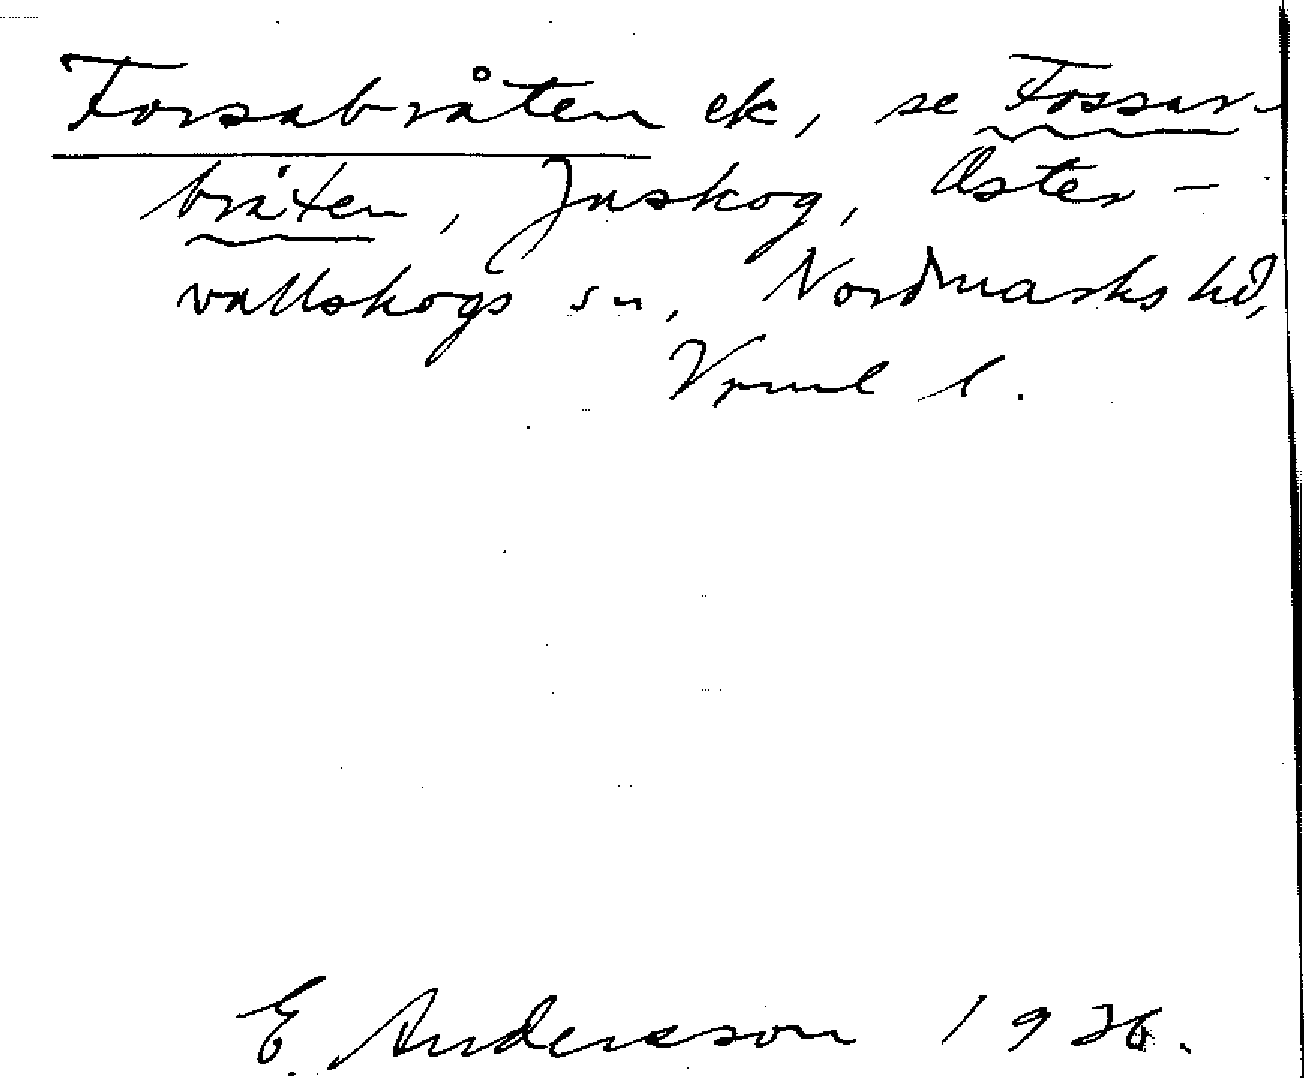 Forsabråten ek, se Fossar-
bråten, Juskog, Öster-
vallskogs sn, Nordmarks hd,
Vrml l.
E Andersson 1926.